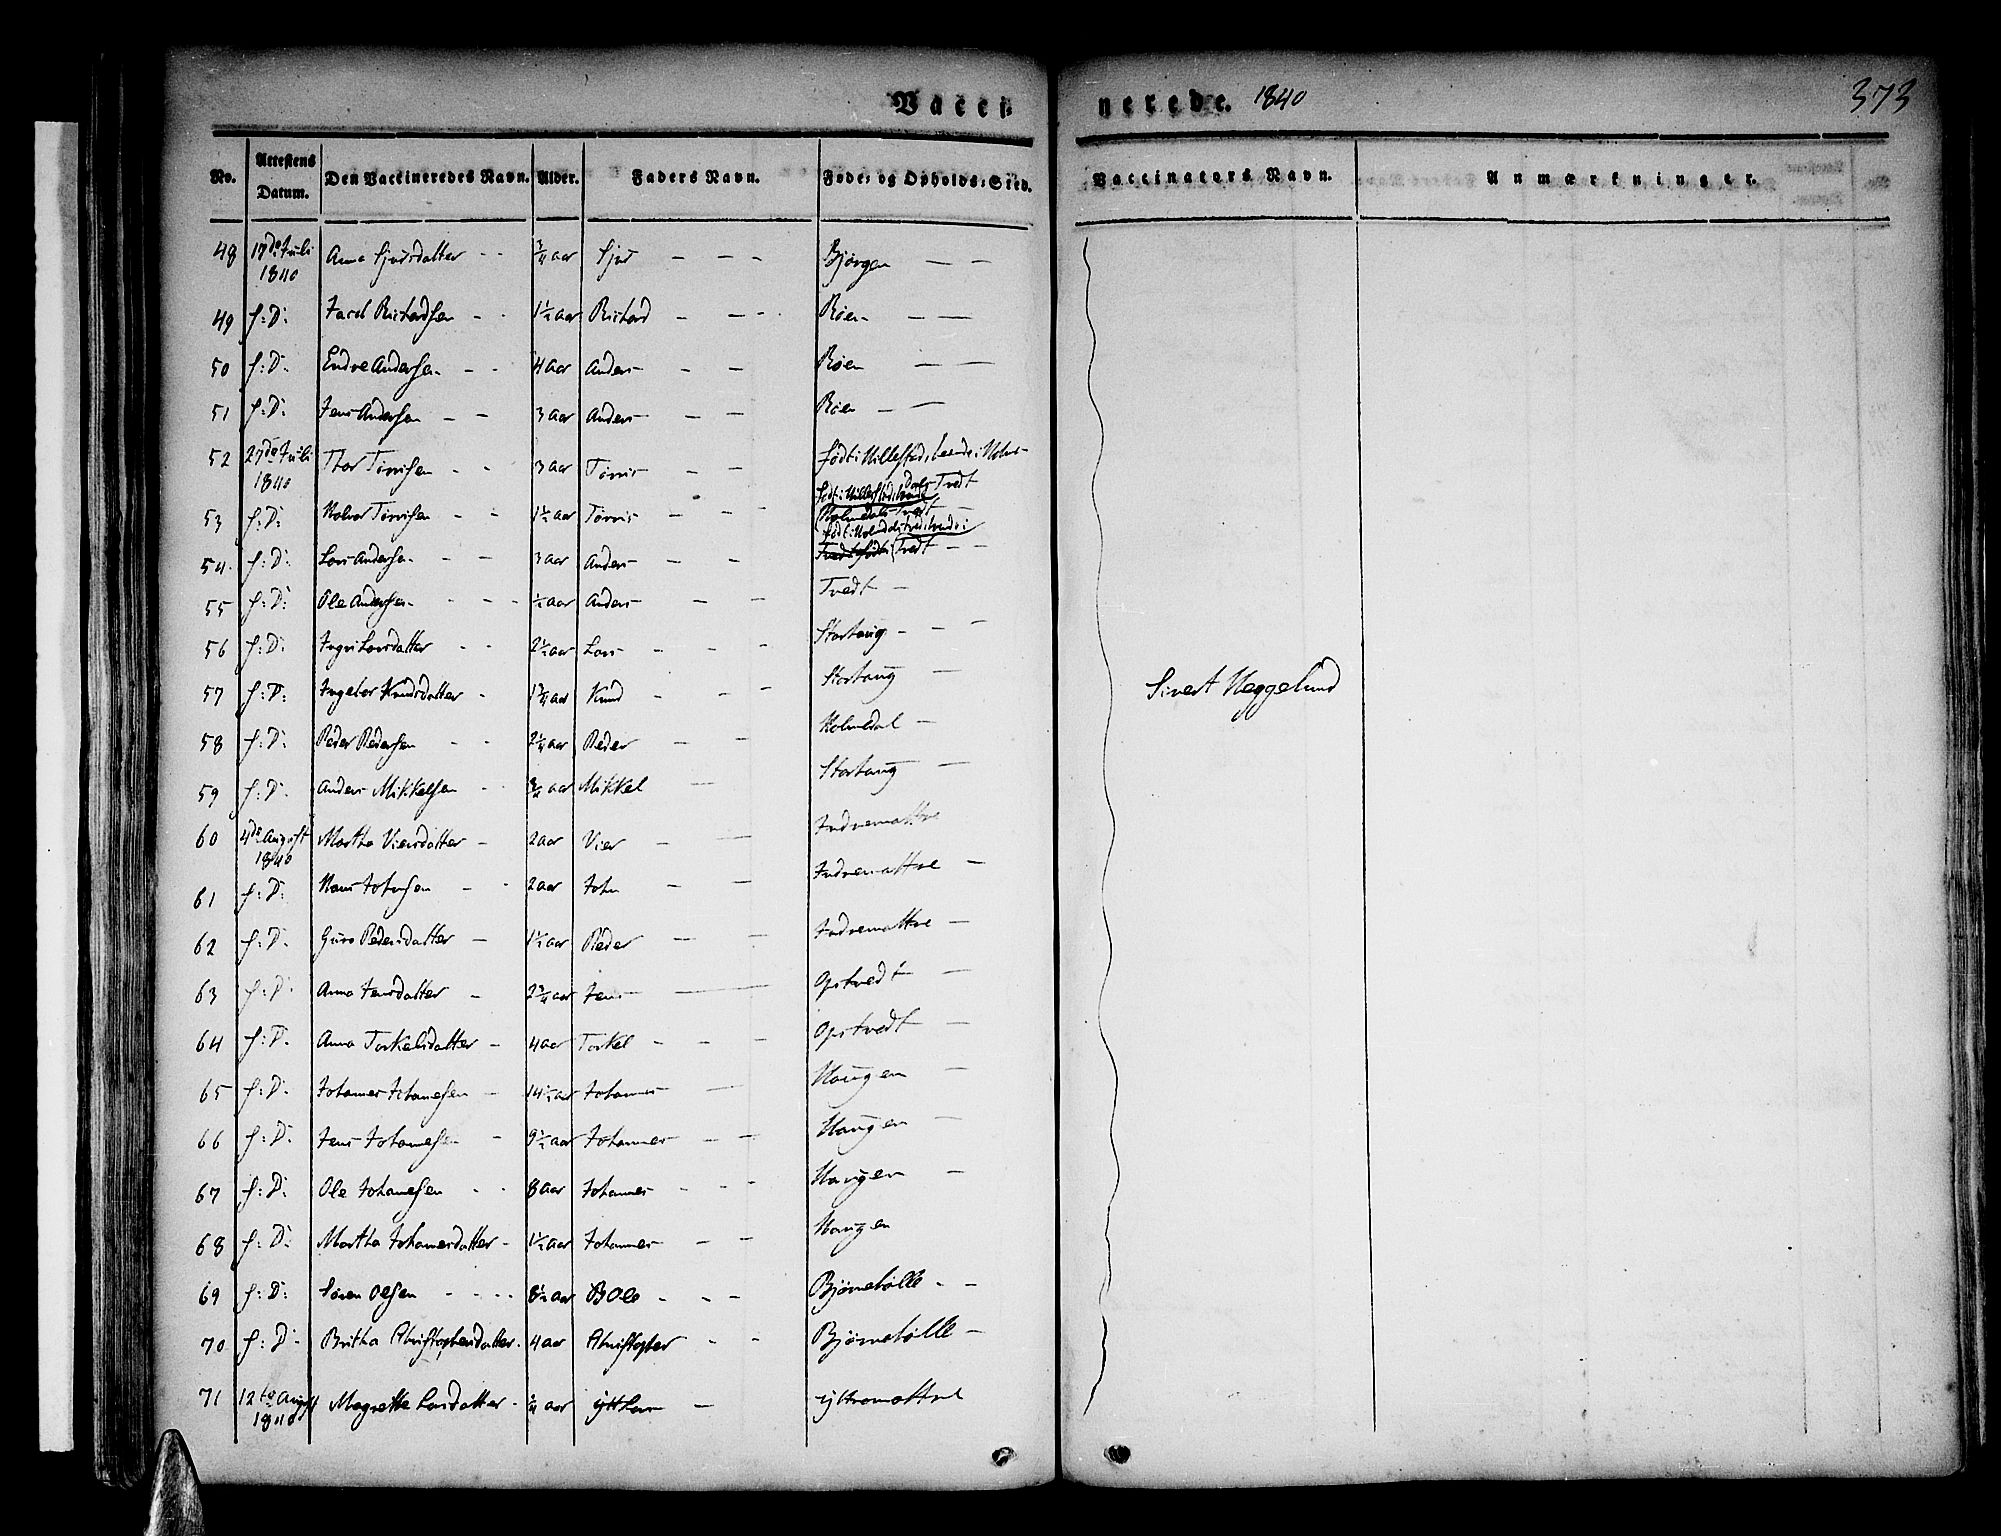 Vacci- nerede. 1840 373
No. Attestens Datum. Den Vaccineredes Navn. Alder. Faders Navn. Føde- og Opholds-Sted. Vaccinators Navn. Anmærkninger.
48 17de Juli 1840 Anna Sjursdatter - - 3/4 aar Sjur - - - Bjørgen - -
49 s: D: Richardsen - - 1 1/2 aar Richard - - - Røen - -
50 s: D: Endre Andersen - - 4 aar Anders - - Røen - -
51 s: D: Jens Andersen - - 3 aar Anders - - Røen - -
52 27de Juli 1840 Thor - - 3 aar - - født i Hillestad, boende i Holme-
dals Tvedt
53 s: D: - - 1 1/2 aar - -
54 s: D: Lars Andersen - - 3 aar Anders - - Tvedt - -
55 s: D: Ole Andersen - - - 1/2 aar Anders - - Tvedt -
56 s: D: Larsdatter - - 2 1/2 aar Lars - - - Storhaug - - -
57 s: D: Ingebor Knudsdatter - 1 3/4 aar Knud - - - Storhaug -
58 s: D: Peder Pedersen - - 2 1/4 aar Peder - - Holmedal -
59 s: D: Anders Mikkelsen - - 3/4 aar Mikkel - Storhaug -
60 4de August 1840 Martha Viersdatter - 2 aar Vier - - Indremattre
61 s: D: Hans Johnsen - - 2 aar John - - Indremattre -
62 s: D: Guro Pedersdatter - 1 1/2 aar Peder - - Indremattre -
63 s: D: Anna Jensdatter - 2 3/4 aar Jens - Opstvedt -
64 s: D: Anna Torkelsdatter - 4 aar Torkel - - - Opstvedt -
65 s: D: Johannes Johanesen - 14 1/2 aar Johannes - Haugen -
66 s: D: Jens Johannesen - 9 1/2 aar Johannes - - Haugen -
67 s: D: Ole Johanesen - - 8 aar Johannes - - - Haugen -
68 s: D: Martha Johanesdatter - 1 1/2 aar Johannes - - Haugen
69 s: D: Søren Olsen - - - - 8 1/2 aar Ole - - - Bjørnebølle - -
70 s: D: Britha Christophersdatter - 4 aar Christopher - - Bjørnebølle -
71 12te August 1840 Magrethe Larsdatter - 1/4 aar Lars - Ytremattre
Sivert Heggelund